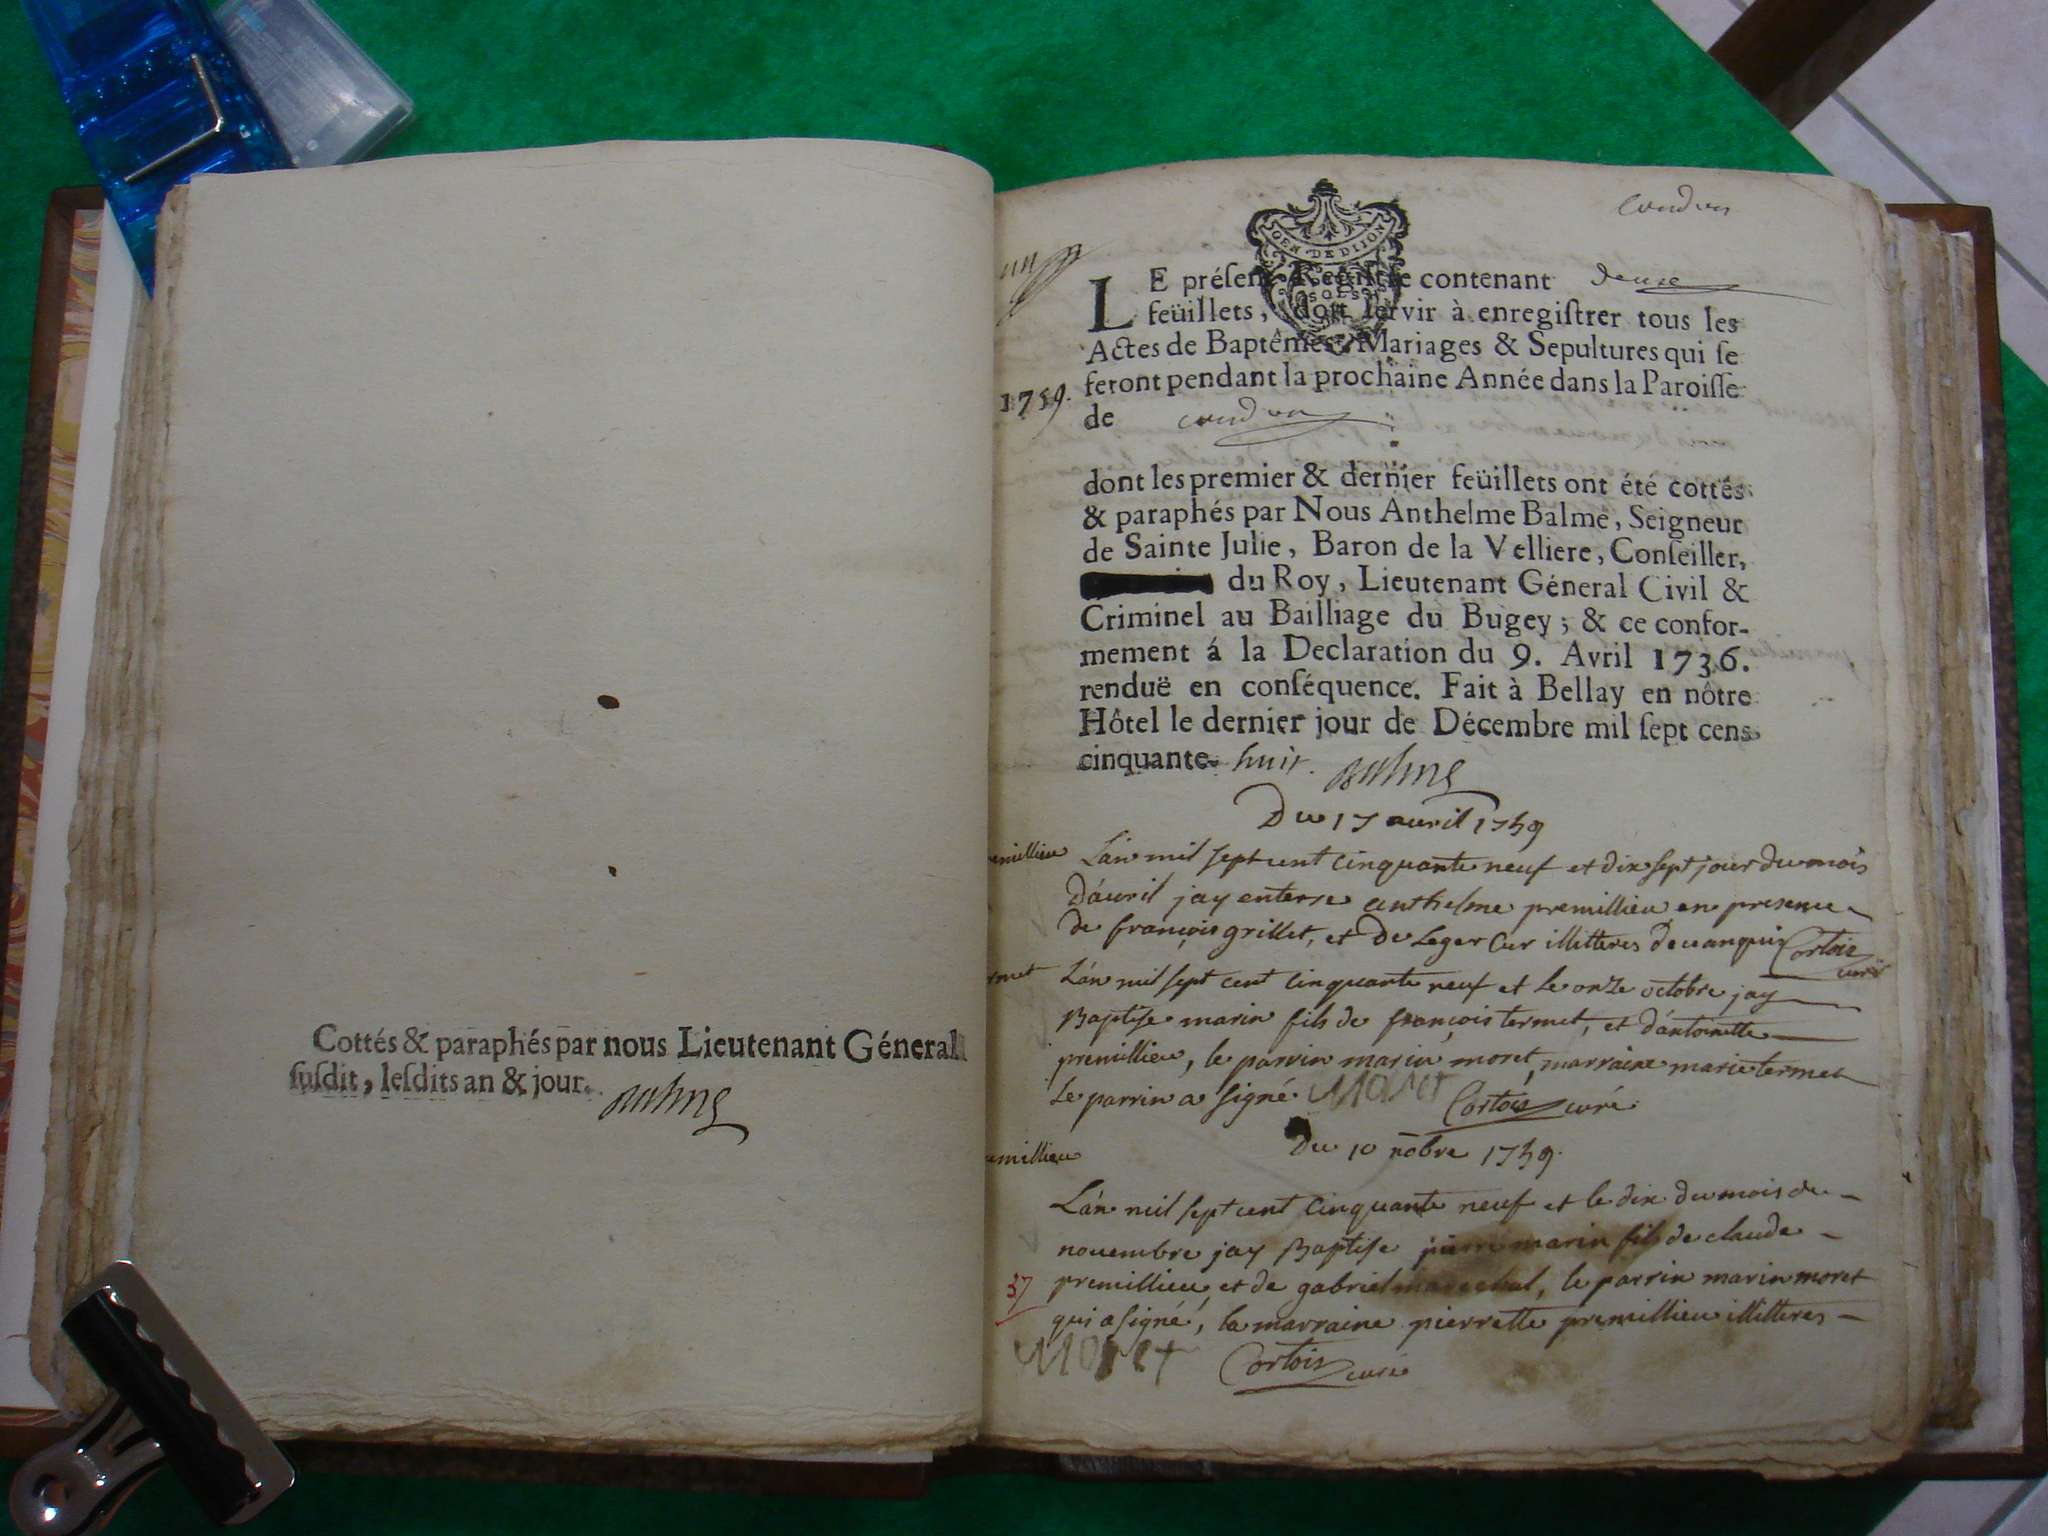 Cottés & paraphés par nous Lieutenant Géneral
susdit, lesdits an & jour.
condon
GEN DE DIJON
LE présent Registre contenant deux
feüillets, doit servir à enregistrer tous les
Actes de Baptêmes, Mariages & Sepultures qui se
feront pendant la prochaine Année dans la Paroisse
1759.
de condon
dont les premier & dernier feüillets ont été cottés
& paraphés par Nous Anthelme Balme, Seigneur
de Sainte Julie, Baron de la Velliere, Conseiller,
du Roy, Lieutenant Géneral Civil &
Criminel au Bailliage du Bugey ; & ce confor-
mement á la Declaration du 9. Avril 1736.
renduë en conséquence. Fait à Bellay en nôtre
Hôtel le dernier jour de Décembre mil sept cens
cinquante huit. Balme
Du 17 avril 1759
emillieu
L'an mil sept cent cinquante neuf et dix sept jour du mois
D'avril jay enterre anthelme premillieu en presence
de françois grillet, et De Leger Cur illitteres de Cortois
curé
rmet
L'an mil sept cent cinquante neuf et le onze octobre jay
Baptise marin fils de françois termet, et d'antoinette
premillieu, le parrin marin moret, marraine marie termet
Le parrin a signé Moret Cortois curé
Du 10 nōbre 1759.
emillieu
L'an mil sept cent cinquante neuf et le dix du mois de
novembre jay Baptise pierre marin fils de claude
37
premillieu et de gabriel marechal, le parrin marin moret
qui a signé, la marraine pierrette premillieu illitteres
Moret Cortois curé